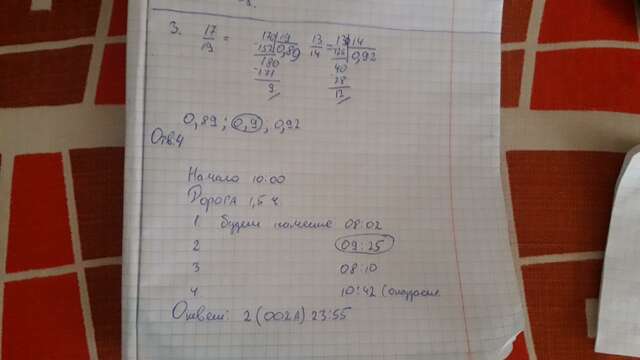 3. 17/19 = 170 19 13/14 = 130 14
-152 0,89 -126 0,92
180 40
-171 -28
9 12
0,89 ; 0,9 ; 0,92
Отв.4
Начало 10:00
Дорога 1,5 ч
1 будем 08:02
2 09:25
3 08:10
4 10:42
Ответ: 2 (002А) 23:55